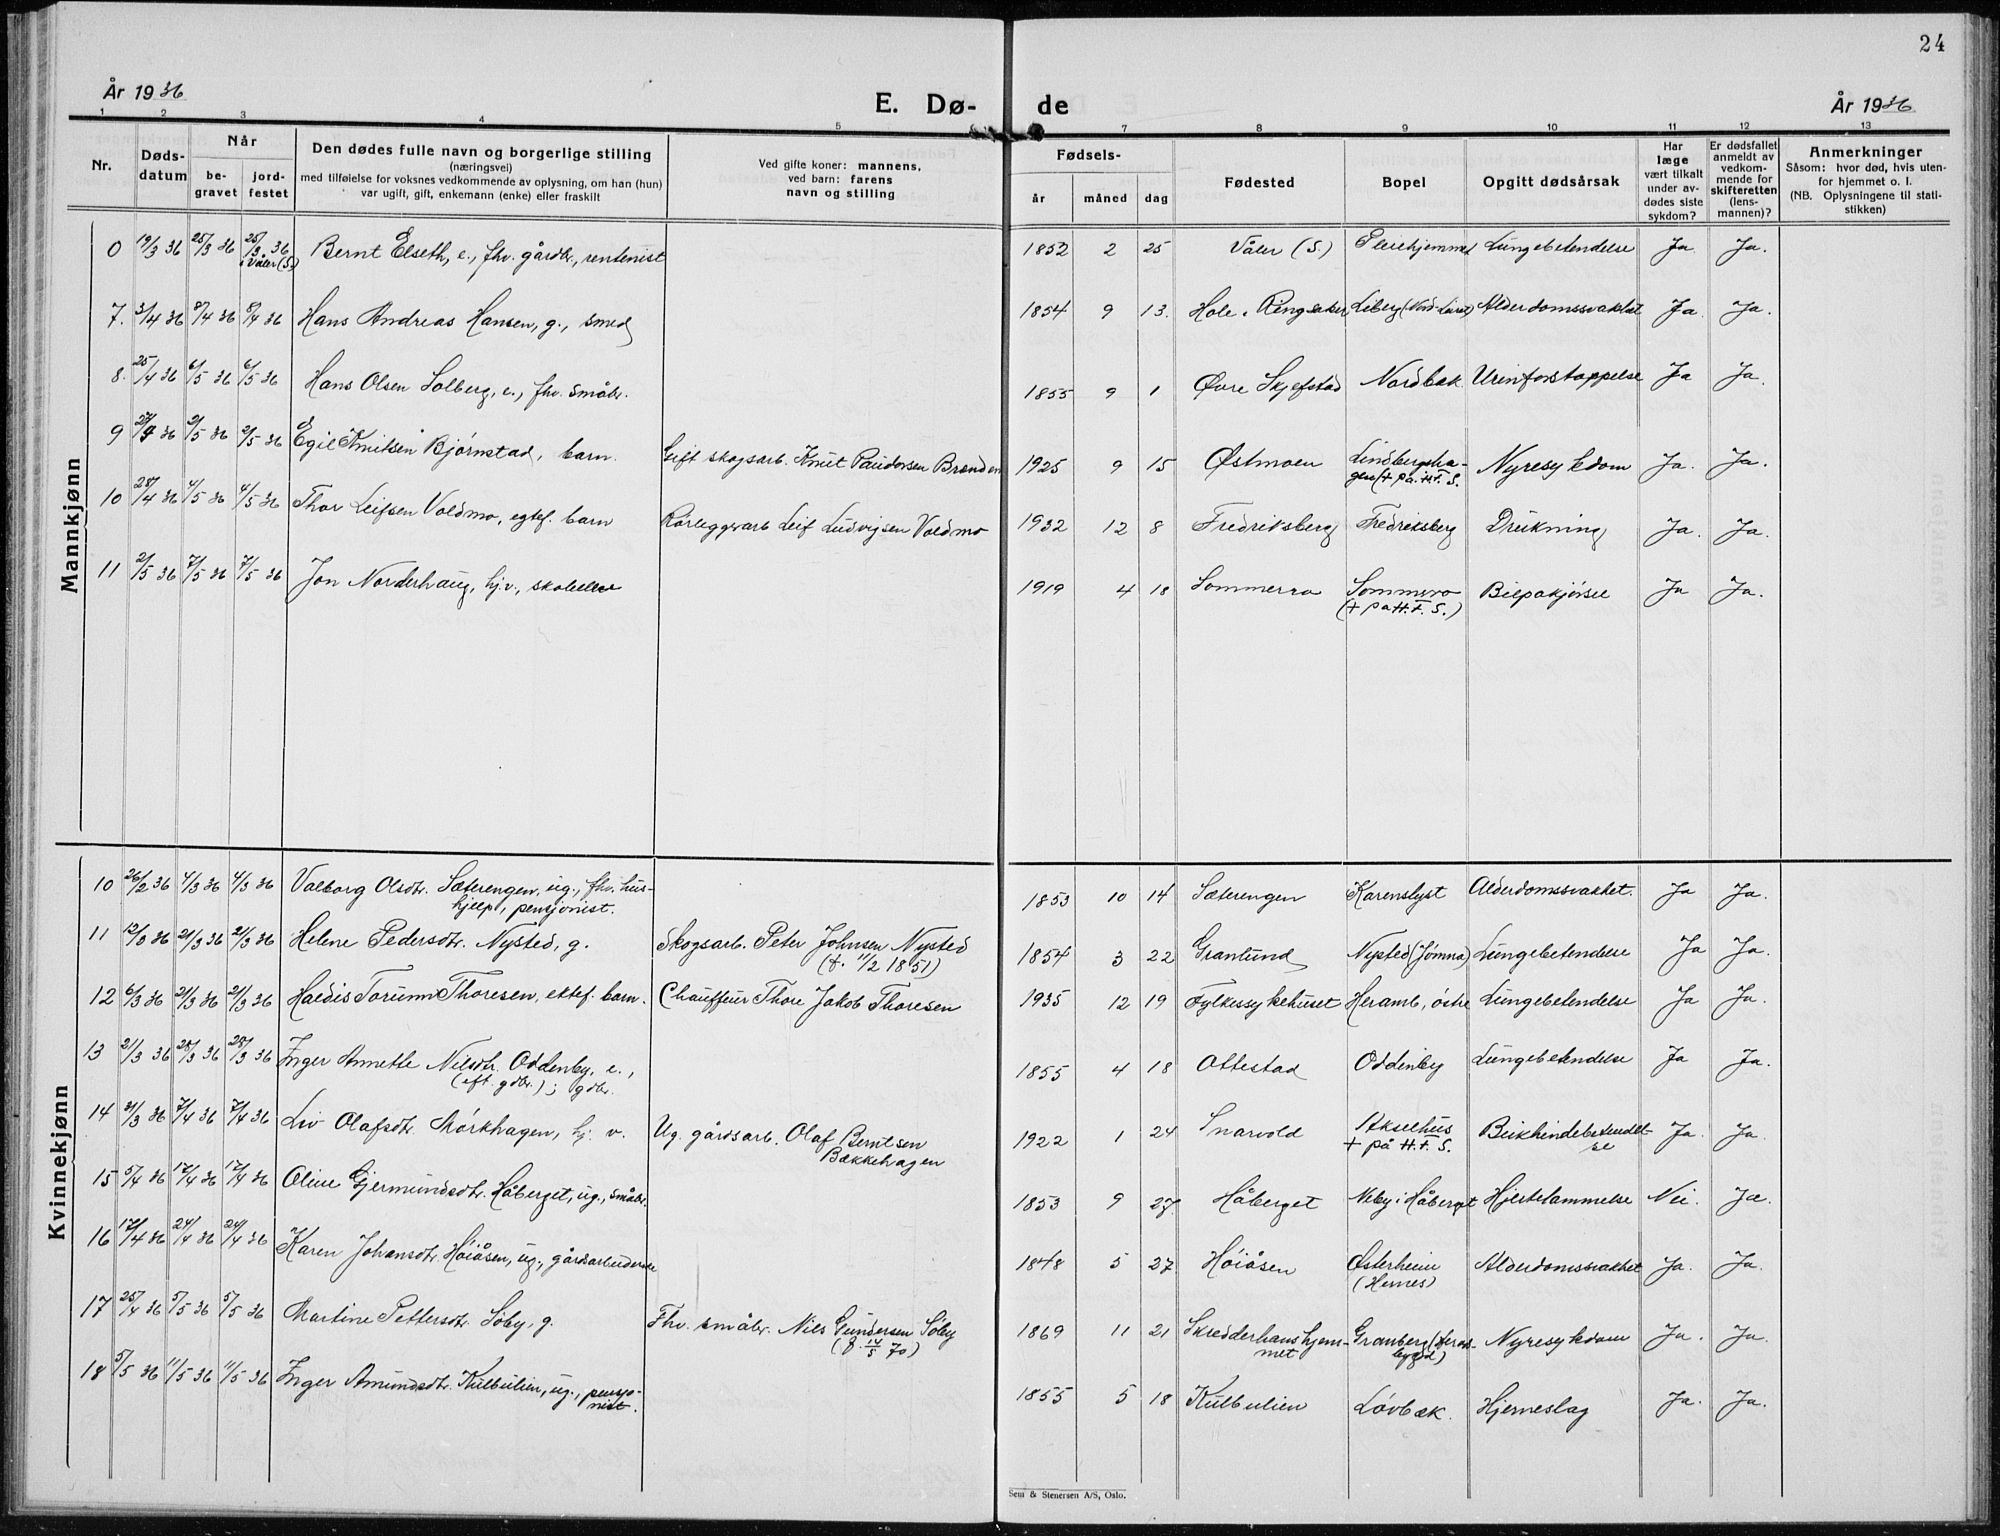 24
År 1936
E. Dø- de
År 1936
1 2 3 4 5 7 8 9 10 11 12 13
Nr.
Døds-
datum
Når
be-
gravet
jord-
festet
Den dødes fulle navn og borgerlige stilling
(næringsvei)
med tilføielse for voksnes vedkommende av oplysning, om han (hun)
var ugift, gift, enkemann (enke) eller fraskilt
Ved gifte koner: mannens,
ved barn: farens
navn og stilling
Fødsels-
år måned dag
Fødested
Bopel
Opgitt dødsårsak
Har
læge
vært tilkalt
under av-
dødes siste
sykdom?
Er dødsfallet
anmeldt av
vedkom-
mende for
skifteretten
(lens-
mannen)?
Anmerkninger
Såsom: hvor død, hvis uten-
for hjemmet o. l.
(NB. Oplysningene til stati-
stikken)
Mannkjønn
19/3 36 25/3 36 25/3 36 i Våler (S) Bernt Elseth, e., fhv. gårdbr., rentenist 1852 2 25 Våler (S) Pleiehjemmet Lungebetendelse Ja Ja.
7. 3/4 36 8/4 36 8/4 36 Hans Andreas Hansen, g., smed 1854 9 13. Hole i Ringsaker Liberg Alderdomssvakhet Ja Ja.
8. 25/4 36 6/5 36 6/5 36 Hans Olsen Solberg, e., fhv. småbr. 1855 9 1 Øvre Skjefstad Nordbæk Urinforstoppelse Ja Ja.
9 27/4 36 2/5 36 2/5 36 Egil Knutsen Bjørnstad, barn. Gift skogsarb. Knut Paulsen Brenden 1925 9 15 Østmoen Lindbergsha-
gen (+ på H.F.S. Nyresykdom Ja. Ja.
10 28/4 36 4/5 36 4/5 36 Thor Leifsen Voldmo, egtef. barn Rørleggerarb Leif Ludvigsen Voldmo 1932 12 8 Fredriksberg Fredriksberg Drukning Ja. Ja.
11 2/5 36 7/5 36 7/5 36 Jon Norderhaug, hj.v., skoleelev 1919 4 18 Sommerro Sommerro
(+ på H.F.S.) Bilpåkjørsel Ja Ja.
Kvinnekjønn
10 26/2 36 4/3 36 4/3 36 Valborg Olsdtr. Sæterengen, ug., fhv. hus-
hjelp, pensjonist. 1853 10 14 Sæterengen Karenslyst Alderdomssvakhet. Ja Ja.
11 12/3 36 21/3 36 21/3 36 Helene Pedersdtr. Nysted, g. Skogsarb. Peter Johnsen Nysted
(f. 11/2 1851) 1854 3 22 Granlund Nysted (Jømna) Lungebetendelse Ja Ja.
12 6/3 36 21/3 36 21/3 36 Haldis Torunn Thoresen, ektef. barn. Chauffeur Thore Jakob Thoresen 1935 12 19 Fylkessykehuset Heramb, østre Lungebetendelse Ja Ja.
13 21/3 36 28/3 36 28/3 36 Inger Annette Nilsdtr. Oddenby, e.,
(eft. gdbr.); gdbr. 1855 4 18 Ottestad Oddenby Lungebetendelse Ja Ja.
14 31/3 36 7/4 36 7/4 36 Liv Olafsdtr. Mørkhagen, hj. v. Ug. gårdsarb. Olaf Berntsen
Bækkehagen 1922 1 24 Snarvold Akselhus
+ på H.F.S. Bukhindebetendel-
se Ja. Ja.
15 5/4 36 17/4 36 17/4 36 Oline Gjermundsdtr. Håberget, ug., småbr. 1853 9 27. Håberget Neby i Håberget Hjertelammelse Nei. Ja.
16 17/4 36 24/4 36 24/4 36 Karen Johansdtr. Høiåsen, ug., gårdsarbeiderske 1848 5 27 Høiåsen Østerheim
(Hernes) Alderdomssvakhet Ja. Ja.
17 25/4 36 5/5 36 5/5 36 Martine Pettersdtr. Søby, g. Fhv. småbr. Nils Gundersen Søby
(f. 14/5 70) 1869 11 21 Skredderhanshjem-
met Granberg Nyresykdom Ja. Ja.
18 5/5 36 11/5 36 11/5 36 Inger Amundsdtr. Kulbulien, ug., pensjo-
nist. 1855 5 18 Kulbulien Løvbæk. Hjerneslag Ja. Ja.
Sem & Stenersen A/S, Oslo.